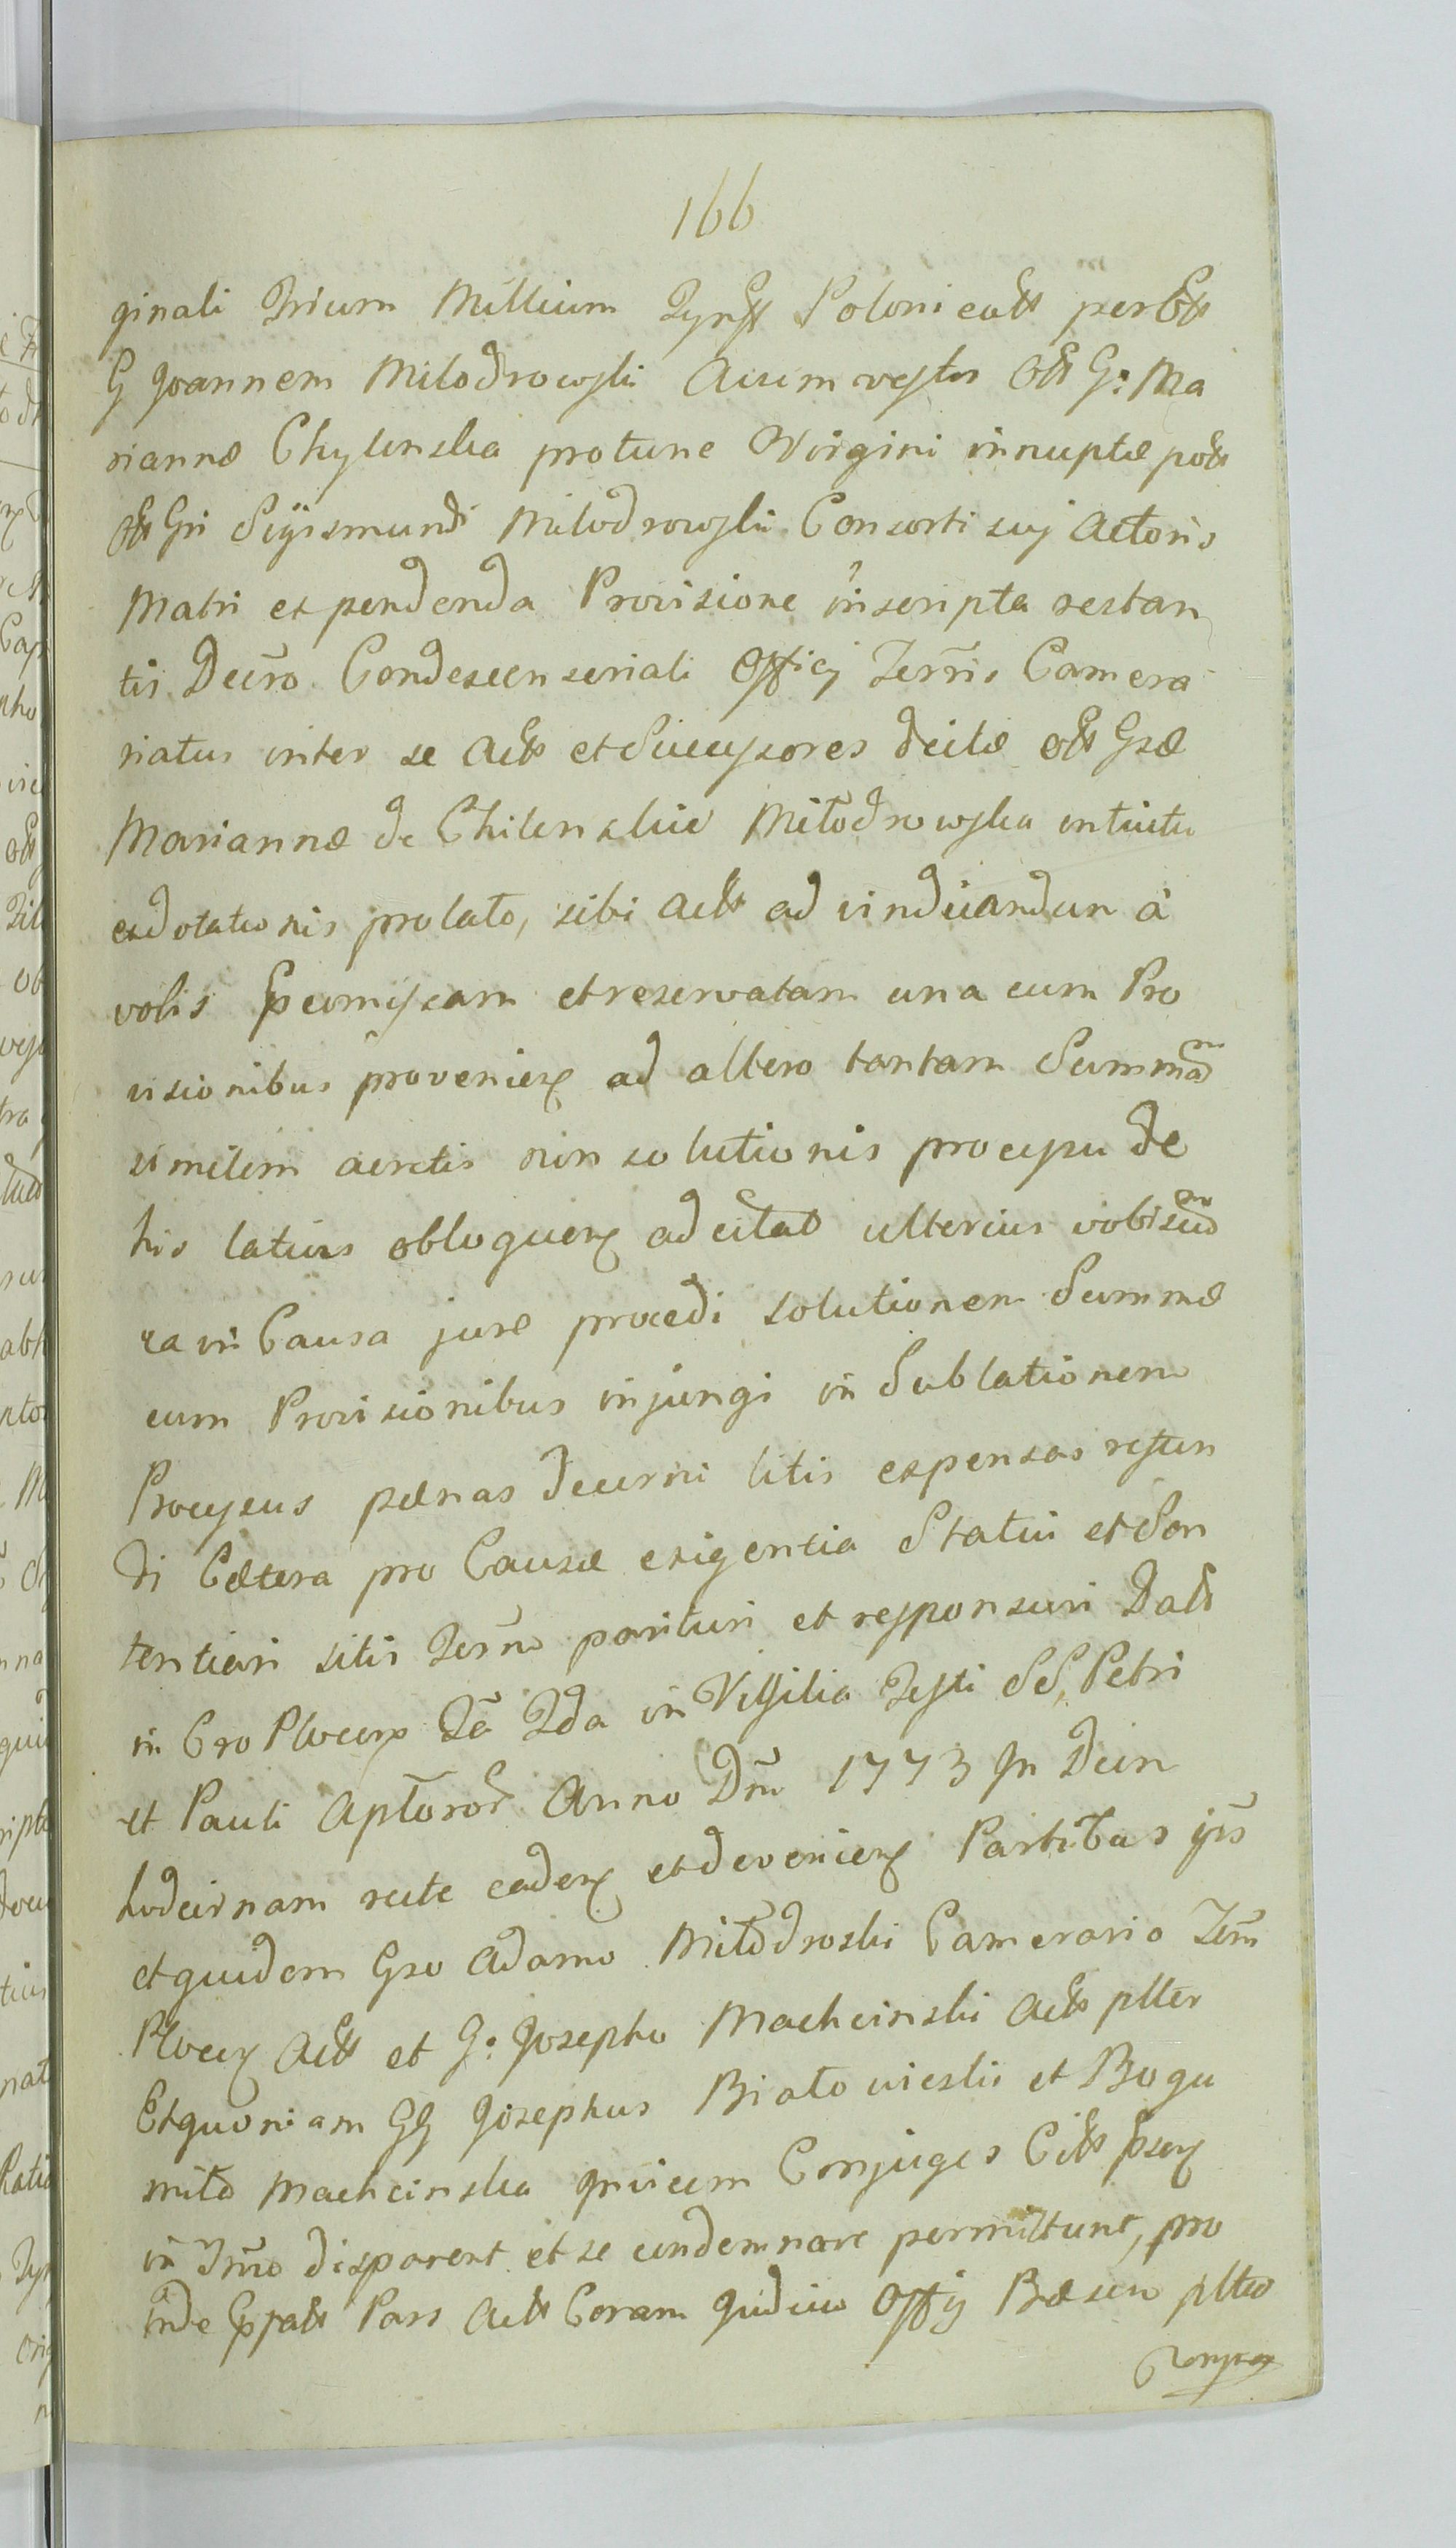 166
ginali Trium Millium Tynff Polonicalt per Olt
G Joannem Miłodrowski Avum vestrum Olt G: Ma
riannæ Chylinska protunc Virgini innuptæ post
Olt Gri Sigismundi Miłodrowski Consorti suj Actoris
Matri ex pendenda Provisione inscripta restan
tis Decro Condescensoriali Officij Terris Camera
riatus inter se Actt et Successores dictæ olt Gsæ
Mariannæ de Chilinskie Miłodrowska intuitu
exdotationis prolato, sibi Actt ad vindicandum à
vobis præmissam et reservatam una cum Pro
visionibus provenien ad altero tantam Summam
similem averetis non solutionis processu de
his latius obloquen adcitat ulterius vobiscum
ea in Causa jure procedi solutionem Summæ
cum Provisionibus injungi in Sublationem
Processus pænas decerni litis expensas refun
di Cætera pro Causæ exigentia Statui et Sen
tentiari sitis Termo parituri et responsuri Datt
in Cro Plocen Fa 2da in Vigilia Festi SS, Petri
et Pauli Aptoror Anno Dni 1773 In Diem
hodiernam recte caden et devenien Partibus ijs
et quidem Gso Adamo Miłodroski Camerario Terr
Plocen Actt et G: Josepho Machcinski Actt plter
Et quoniam GG Josephus Białowieski et Bogu
miła Machcinska Invicem Conjuges Citt pser
in Trno disparent et se condemnare permittunt, pro
inde pffatt Pars Actt Coram Judicio Officij Præsen plter